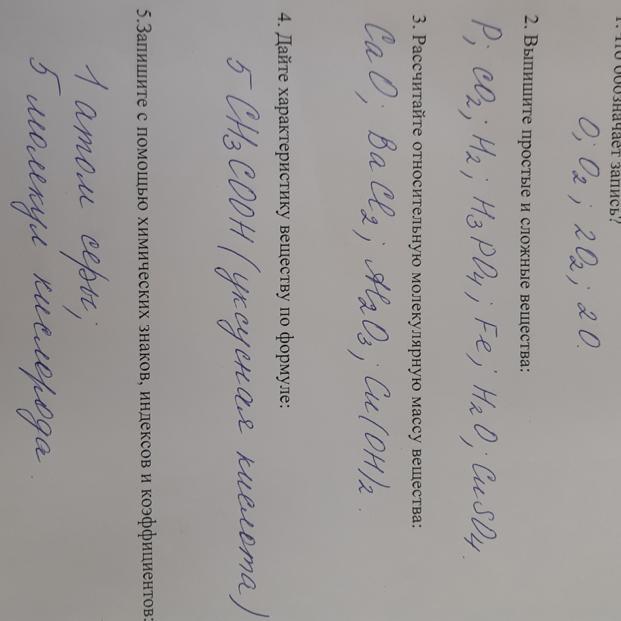 1. Что обозначает запись?
O; O2; 2O2; 2O.
2. Выпишите простые и сложные вещества:
P; CO2; H2; H3PO4; Fe; H2O; CuSO4.
3. Рассчитайте относительную молекулярную массу вещества:
CaO; BaCl2; Al2O3; Cu(OH)2.
4. Дайте характеристику веществу по формуле:
5 CH3COOH (уксусная кислота)
5.Запишите с помощью химических знаков, индексов и коэффициентов:
1 атом серы;
5 молекул кислорода.